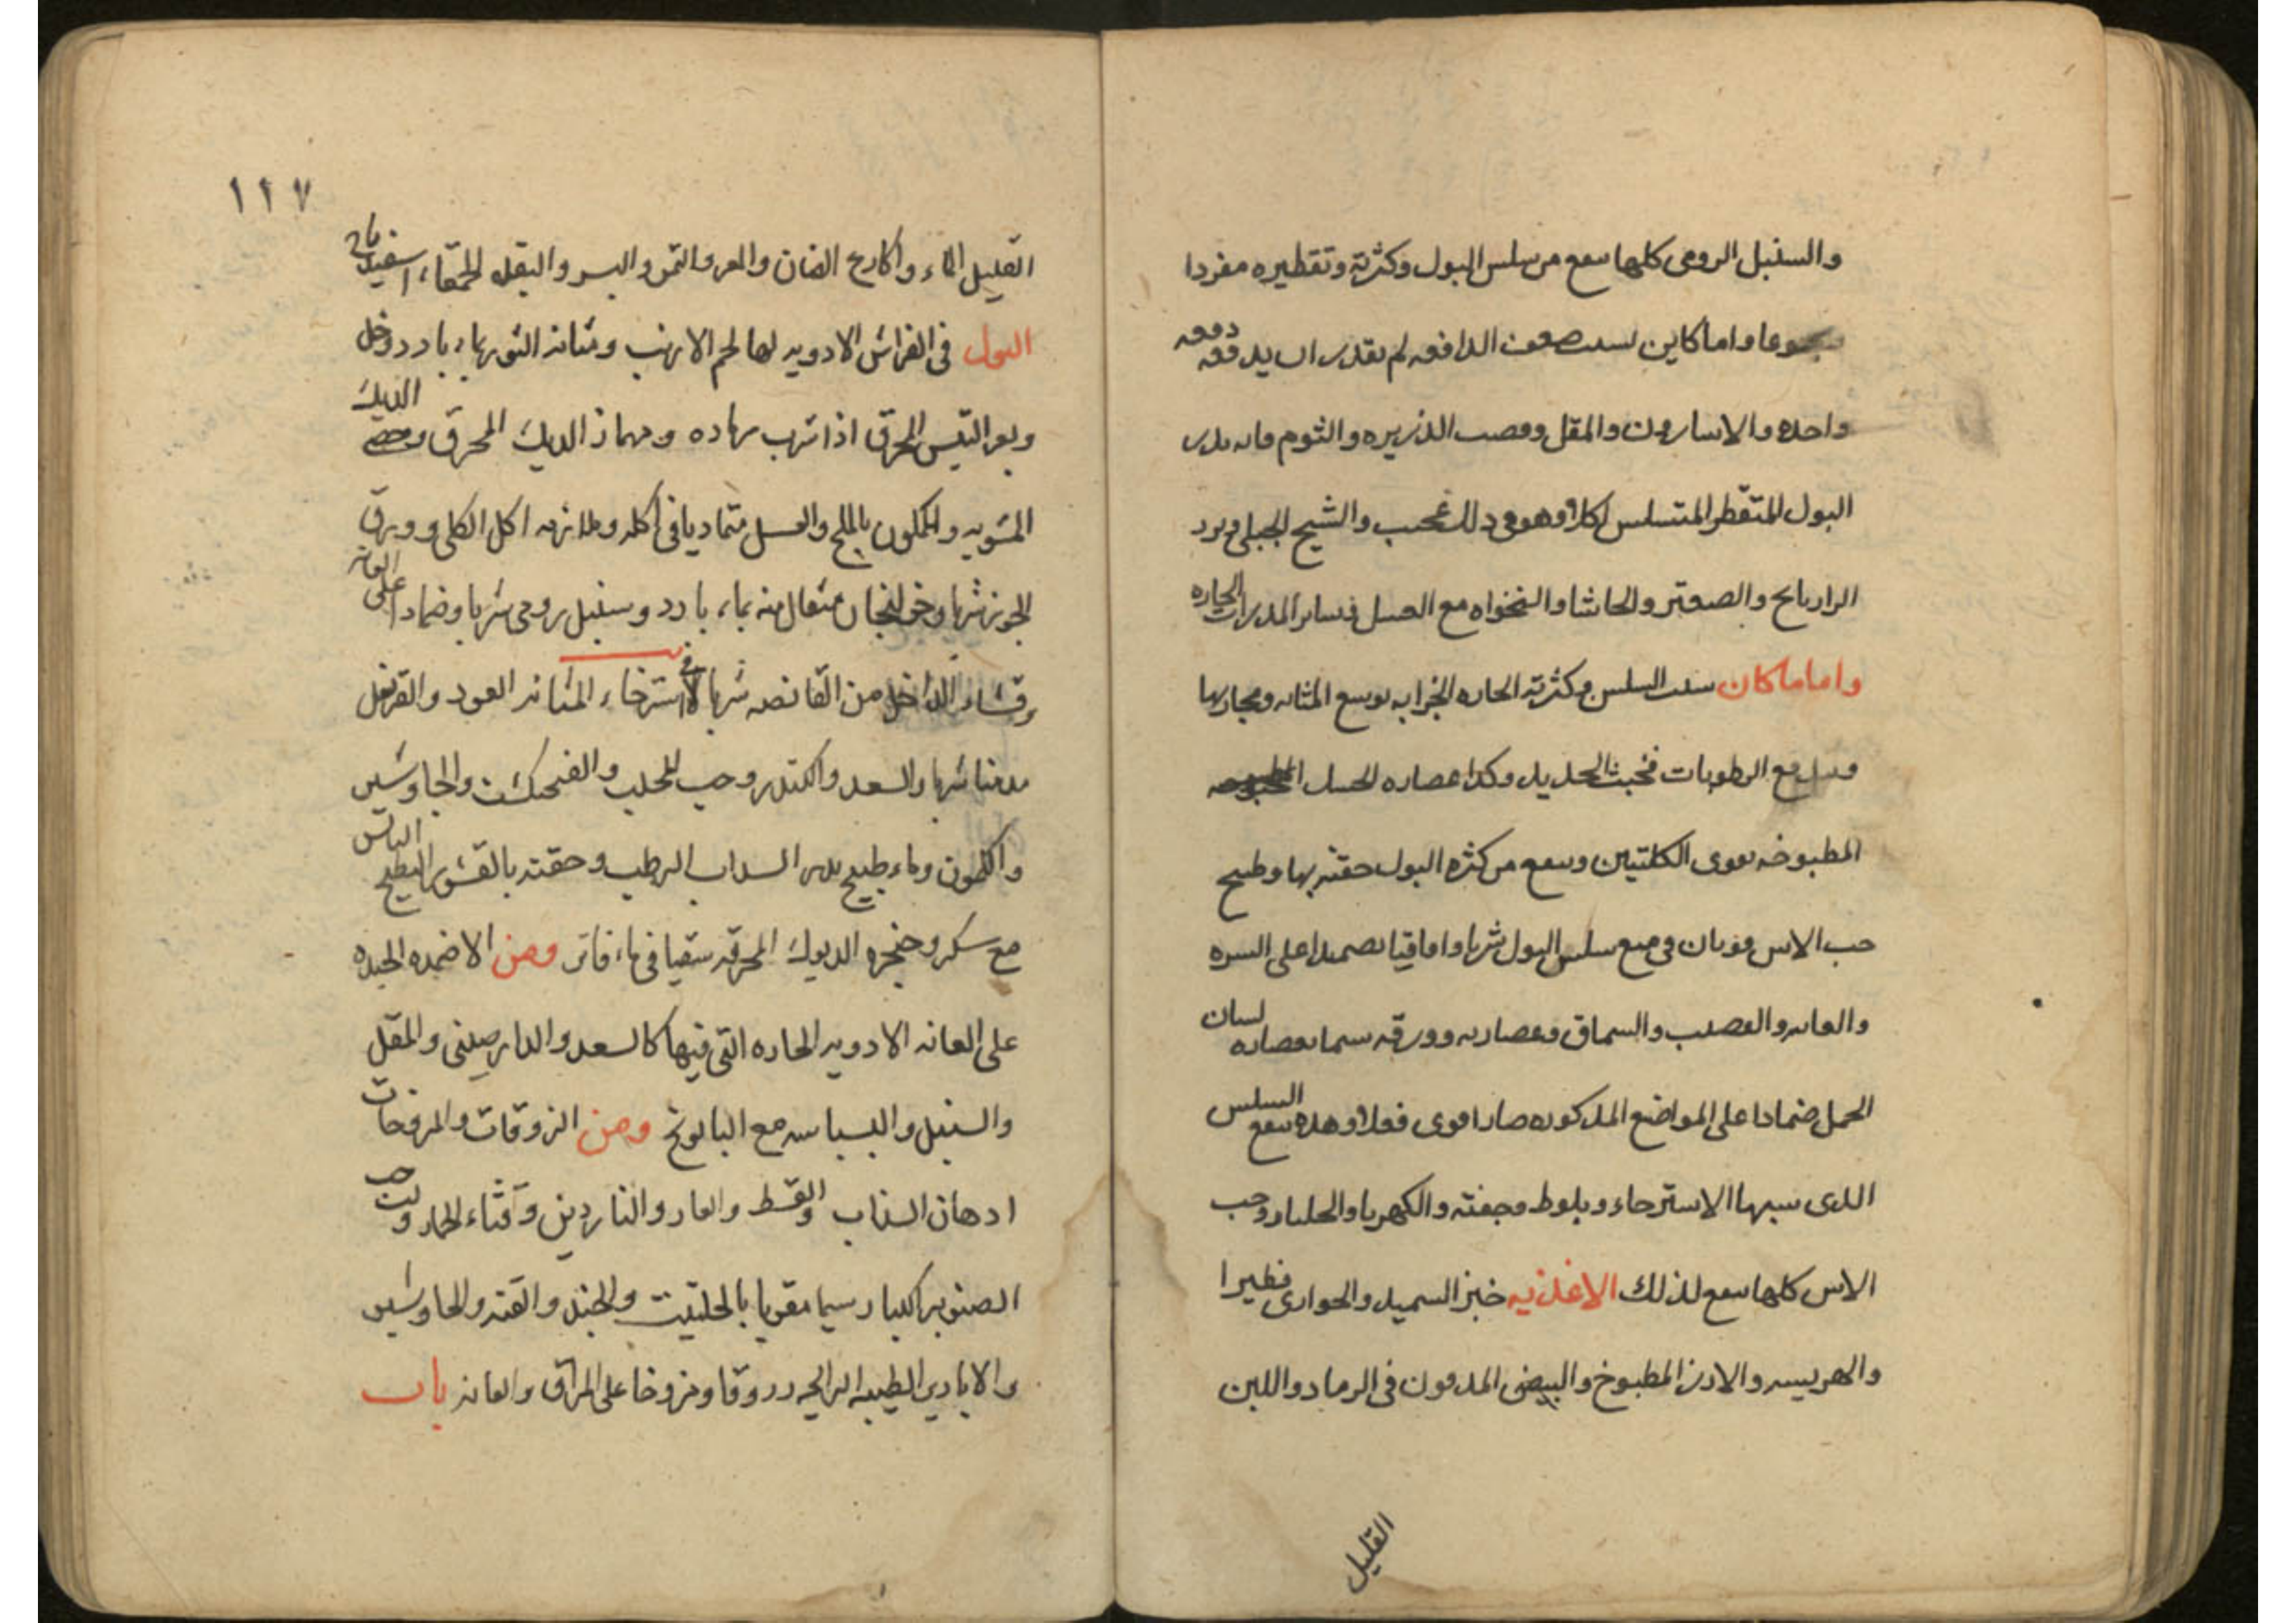 والسنبل الرومى كلها سفع من سلس البول وكثرته وتقطيره مفردا
واما كاين لسبب صعف الدافعه لم يقدر ان يدفعه دفعه
واحده والاسارون والمقل وقصب الذريره والثوم فانه يدر
البول المتقطر المتسلسل اكلا وهو فى ذلك عجيب والشيح الجبلى وبزر
الرازيانج والصعتر والحاشا والنخواه مع العسل وساير المدرات الحاره
واما ما كان سبب السلس وكثرته الحاره الجزابه توسع المثانه ومجاريها
مع الرطوبات فخبث الحديد وكذا عصاره
المطبوخه يقوى الكليتين وينفع من كثره البول حقنة بها وطبيخ
حب الاس فى منع سلس البول شربا واقاقيا تضميدا على السره
والعانه والسماق وعصارته وورقه سيما بعصاره لسان
الحمل ضمادا على المواضع المذكوره صار اقوى فعلا وهذه تنفع السلس
الذى سببها الاسترخاء وبلوط وجفته والكهربا والجلنار وحب
الاس كلها ينفع لذلك الاغذيه خبز السميد والحوارى فطيرا
والهريسه والارز المطبوخ والبيض المدفون فى الرماد واللبن
القليل
١٢٧
القليل الماء واكارع الضان والمعز والتمر والبسر والبقله الحمقاء اسفيدباج
البول فى الفراش الادويه لها لحم الارنب ومثانه الثور بماء بارد وخل
وبعر التيس المحرق اذا شرب رماده ومهماز الديك المحرق وخصى الديك
المشويه والكمون بالملح والعسل متماديا فى اكله وملازمه اكل الكلى وورق
الجوز شربا وخولنجان مثقال منه بماء بارد وسنبل رومى شربا وضمادا على العانه
وقشاء الداخل من القانصه شربا لاسترخاء المثانه العود والقرنفل
شربا والسعد والكندر وحب المحلب والفنجنكشت والجاوشير
والكمون وماء طبيخ بزر السداب الرطب وحقنته بالقشور البطيخ اليابس
مع سكر وحنجره الديوك المحرقه سقيا فى ماء فاتر ومن الاضمده الجيده
على العانه الادويه الحاره التى فيها كالسعد والدارصينى والمقل
والسنبل والبسباسه مع البابونج ومن الزروقات والمروخات
ادهان السذاب والقسط والغار والناردين وقثاء الحمار ولب حب
الصنوبر الكبار سيما مقويا بالحلتيت والجند والقنه والجاوشير
والاباذير الطيبه الرايحه زروقا ومزوخا على المراق والعانه باب